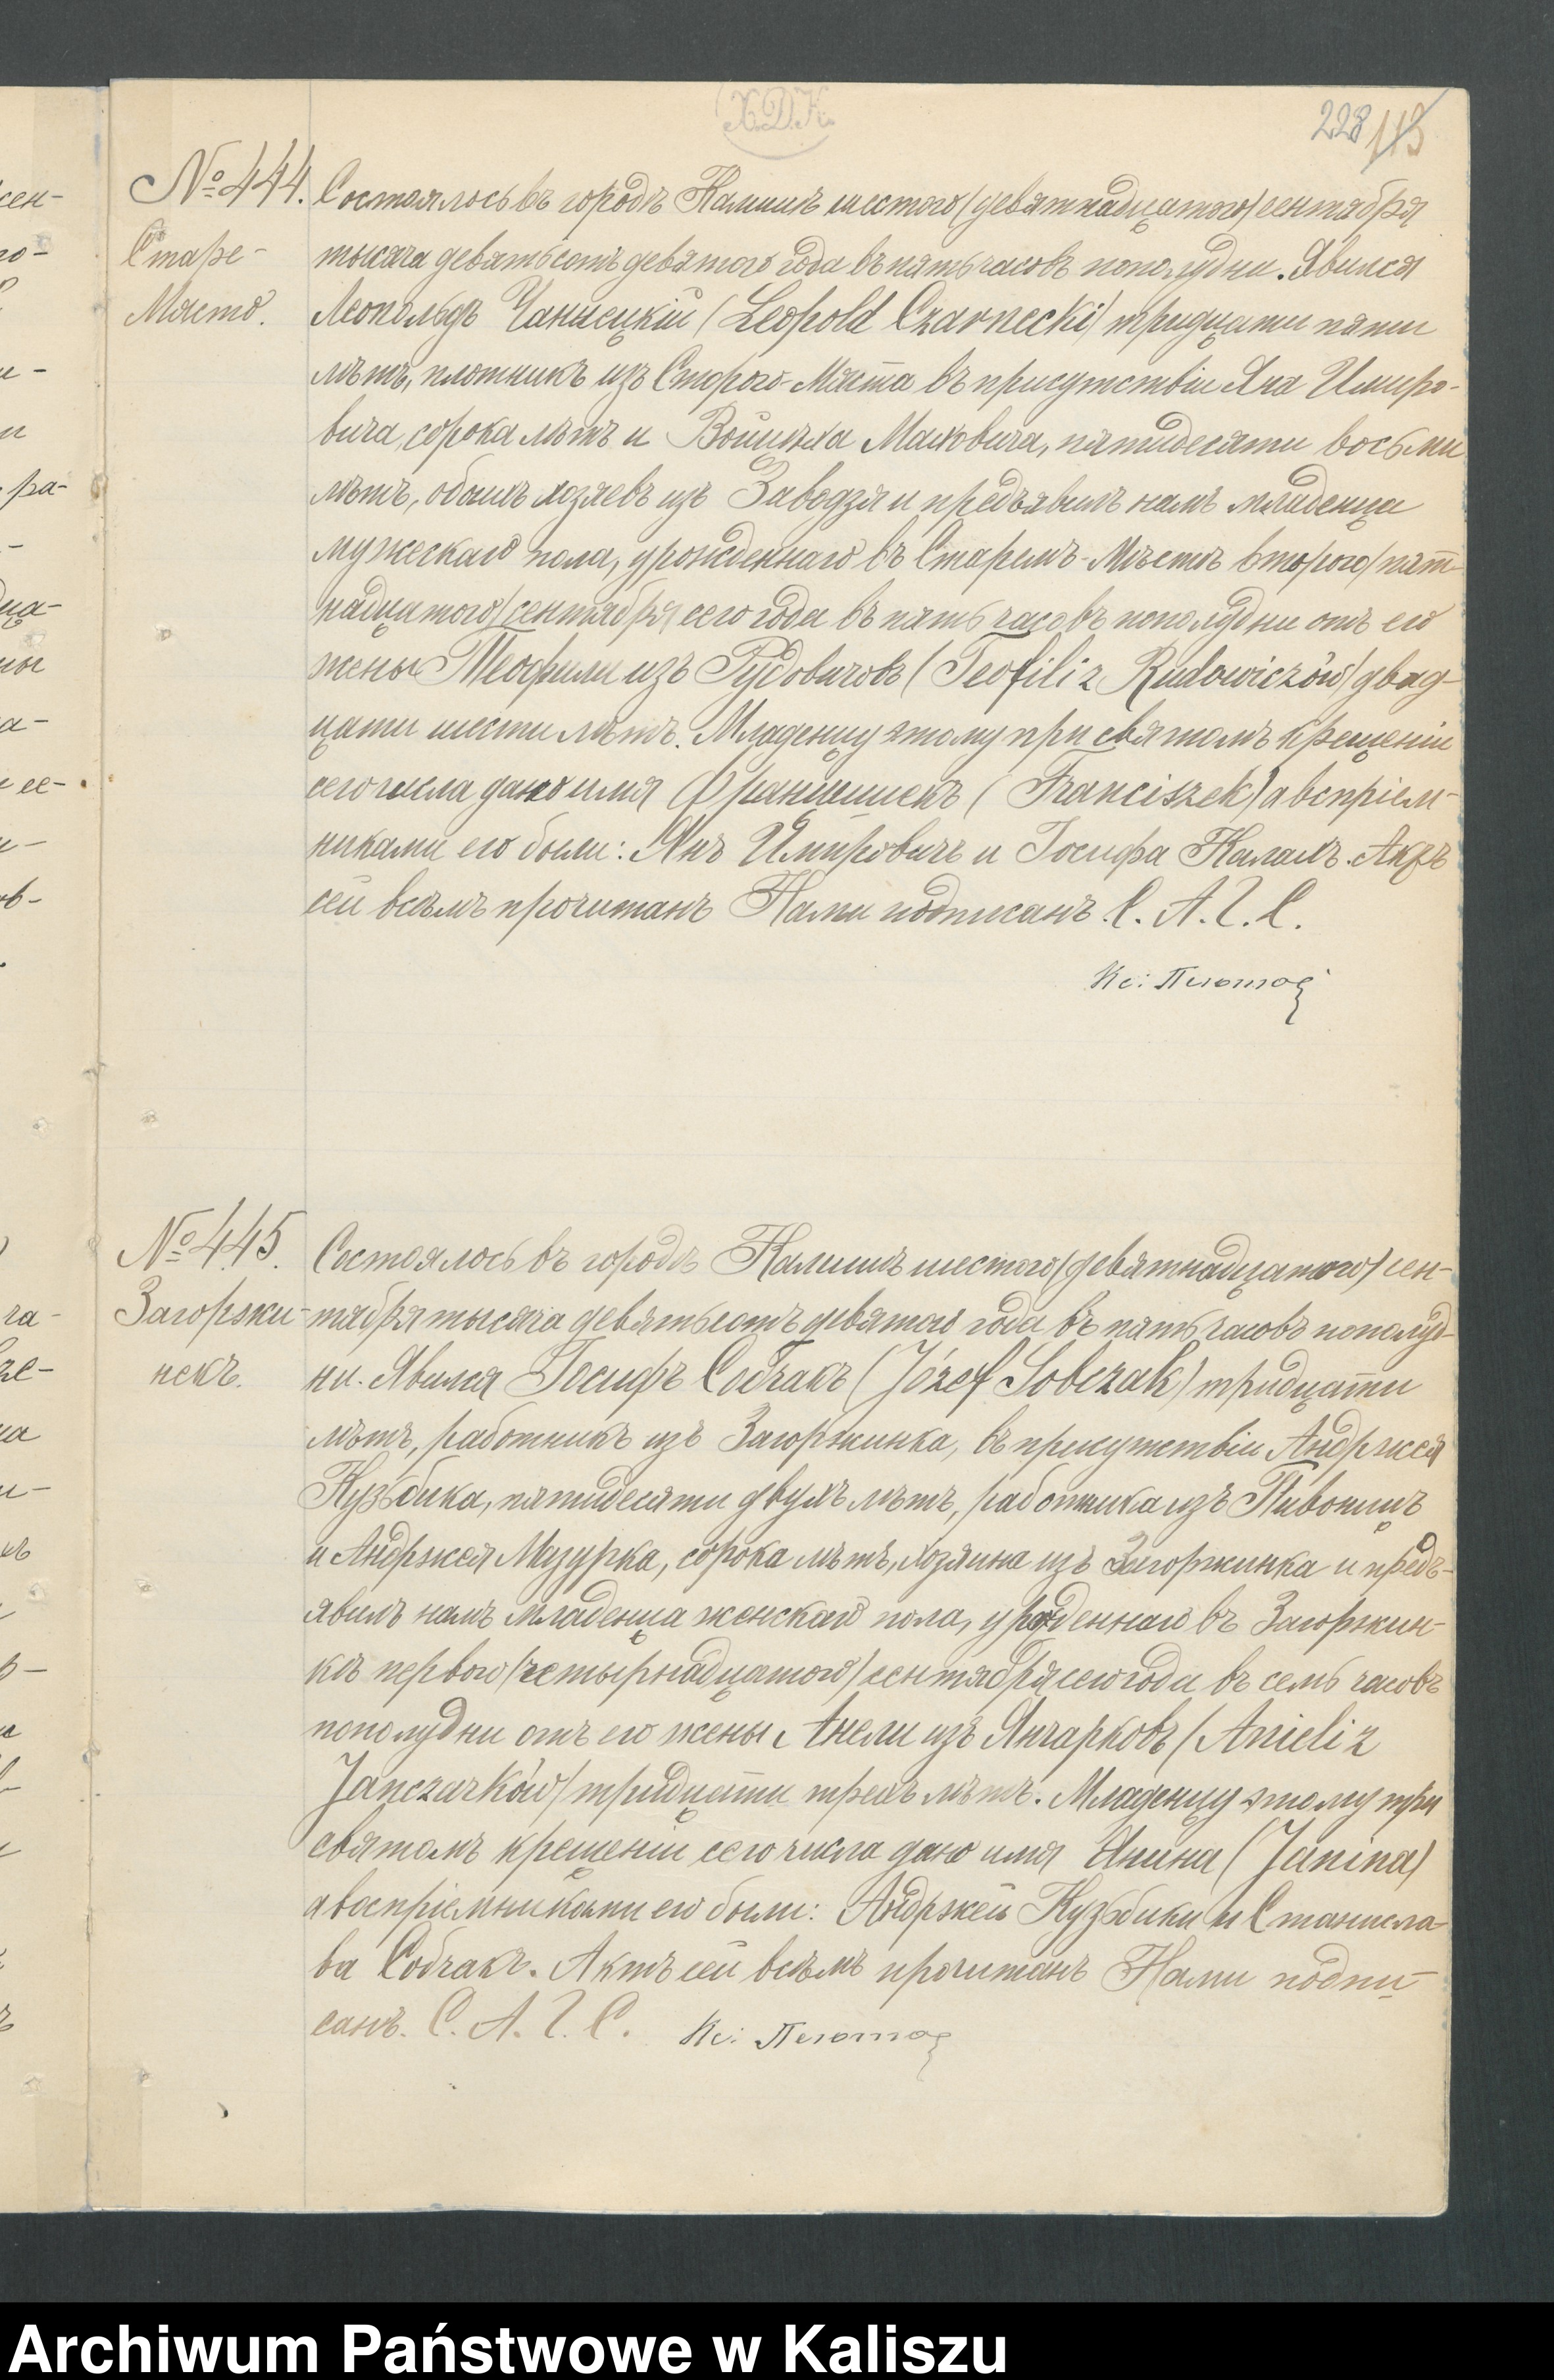 228 113
№ 444.
Старе-
Място.
Состоялось въ городѣ Калишѣ шестого (девятнадцатого) сентября
тысяча девятьсотъ девятого года въ пять часовъ пополудни. Явился
Леопольдъ Чарнецкій (Leopold Czarnecki) тридцати пяти
лѣтъ, плотникъ изъ Старого-Мяста въ присутствіи Яна
сорока лѣтъ и Войцѣха Мацовича, пятидесяти восьми
лѣтъ, обоихъ хозяевъ изъ Заводзя и предъявилъ намъ младенца
мужескаго пола, урожденнаго въ Старимъ-Мѣстѣ второго (пят-
надцатого) сентября сего года въ пять часовъ пополудни отъ его
жены Теофили изъ Рудовичовъ (Teofili z Rudowiczów) двад-
цати шести лѣтъ. Младенцу этому при святомъ крещеніи
сего числа дано имя Францишекъ (Franciszek) а воспріем-
никами его были: Янъ и Іосифа Акт
сей всѣмъ прочитанъ Нами подписанъ. С. А. Г. С.
Кс:
№ 445.
Загоржи-
некъ.
Состоялось въ городѣ Калишѣ шестого (девятнадцатого) сен-
тября тысяча девятьсотъ девятого года въ пять часовъ пополуд-
ни. Явился Іосифъ Собчакъ (Józef Sobczak) тридцати
лѣтъ, работникъ изъ Загоржинка, въ присутствіи Андржея
Кузьбика, пятидесяти двухъ лѣтъ, работника изъ Пивоницъ
и Андржея Мазурка, сорока лѣтъ, хозяина изъ Загоржинка и предъ-
явилъ намъ младенца женскаго пола, урожденнаго въ Загоржин-
кѣ первого (четырнадцатого) сентября сего года въ семь часовъ
пополудни отъ его жены Анели изъ Янчарковъ (Anieli z
Janczarków) тридцати трехъ лѣтъ. Младенцу этому при
святомъ крещеніи сего числа дано имя Янина (Janina)
а воспріемниками его были: Андржей Кузьбики и Станисла-
ва Собчакъ. Актъ сей всѣмъ прочитанъ Нами подпи-
санъ. С. А. Г. С. Кс:
Archiwum Państwowe w Kaliszu